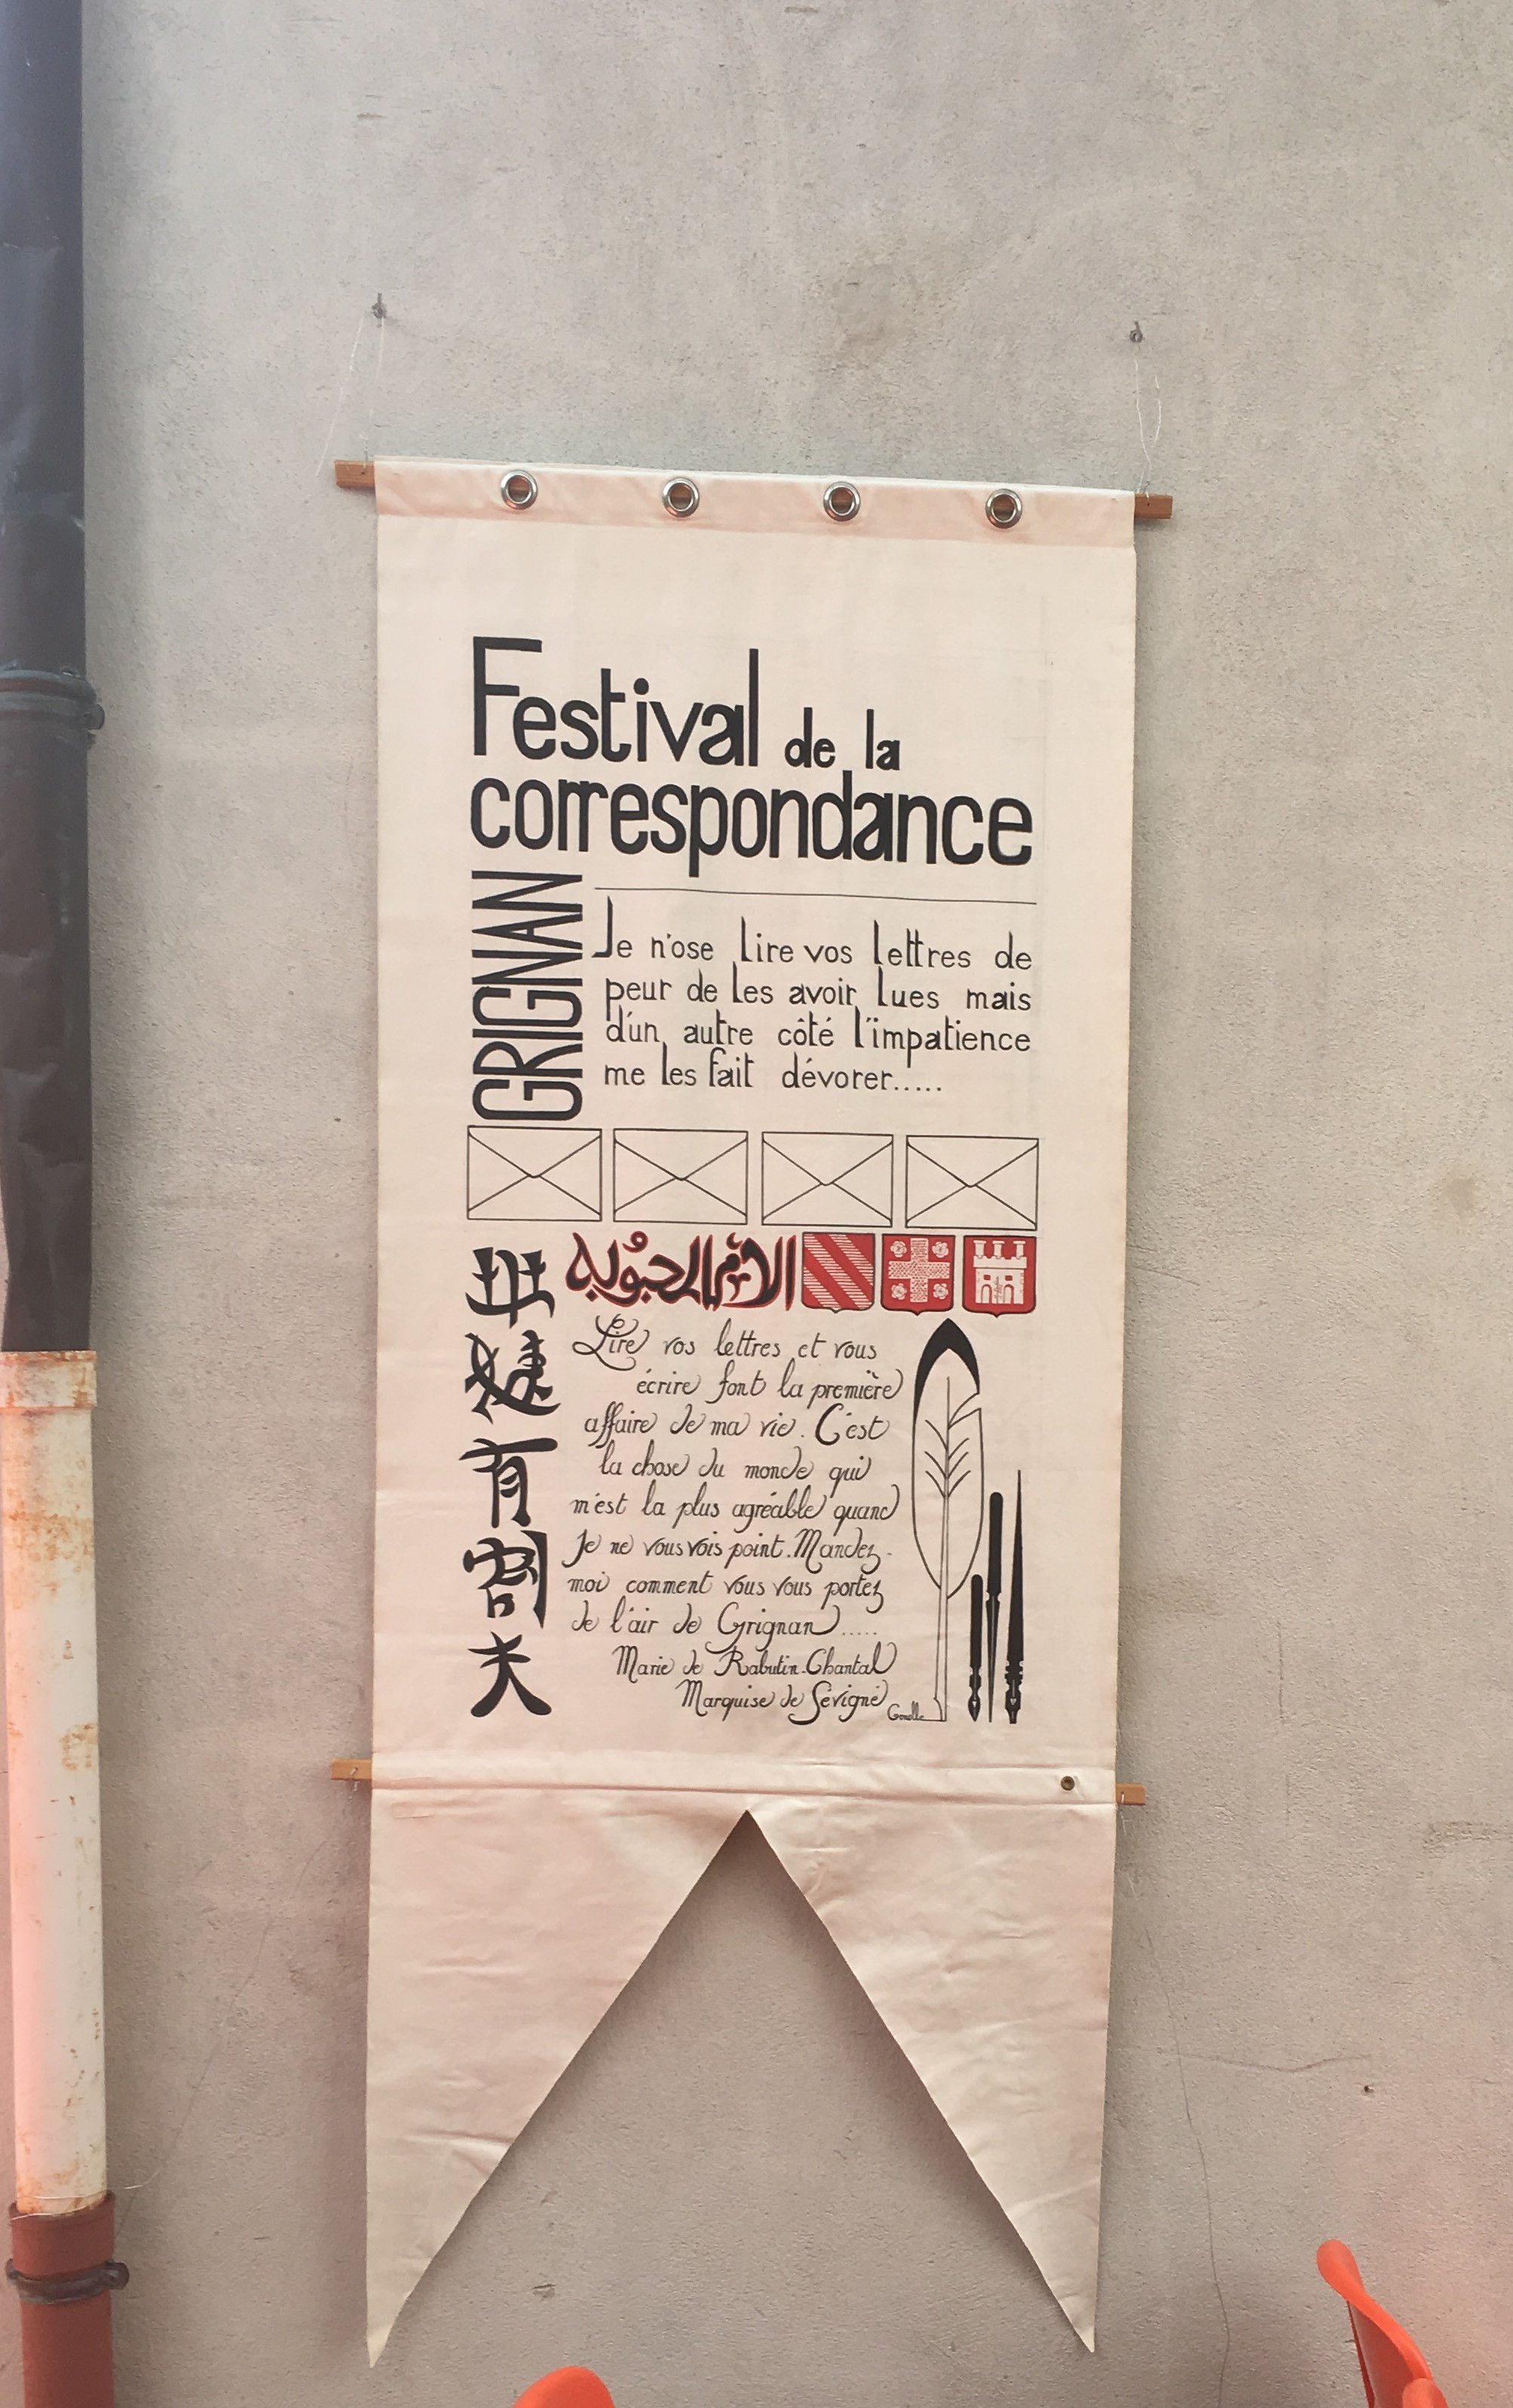 Festival de la
correspondance
GRIGNAN
Je n'ose lire vos lettres de
peur de les avoir lues mais
d'un autre côté l'impatience
me les fait dévorer.....
Lire vos lettres et vous
écrire font la première
affaire de ma vie. C'est
la chose du monde qui
m'est la plus agréable quand
Je ne vous vois point. Mandez-
moi comment vous vous portez
de l'air de Grignan.....
Marie de Rabutin-Chantal
Marquise de Sévigné